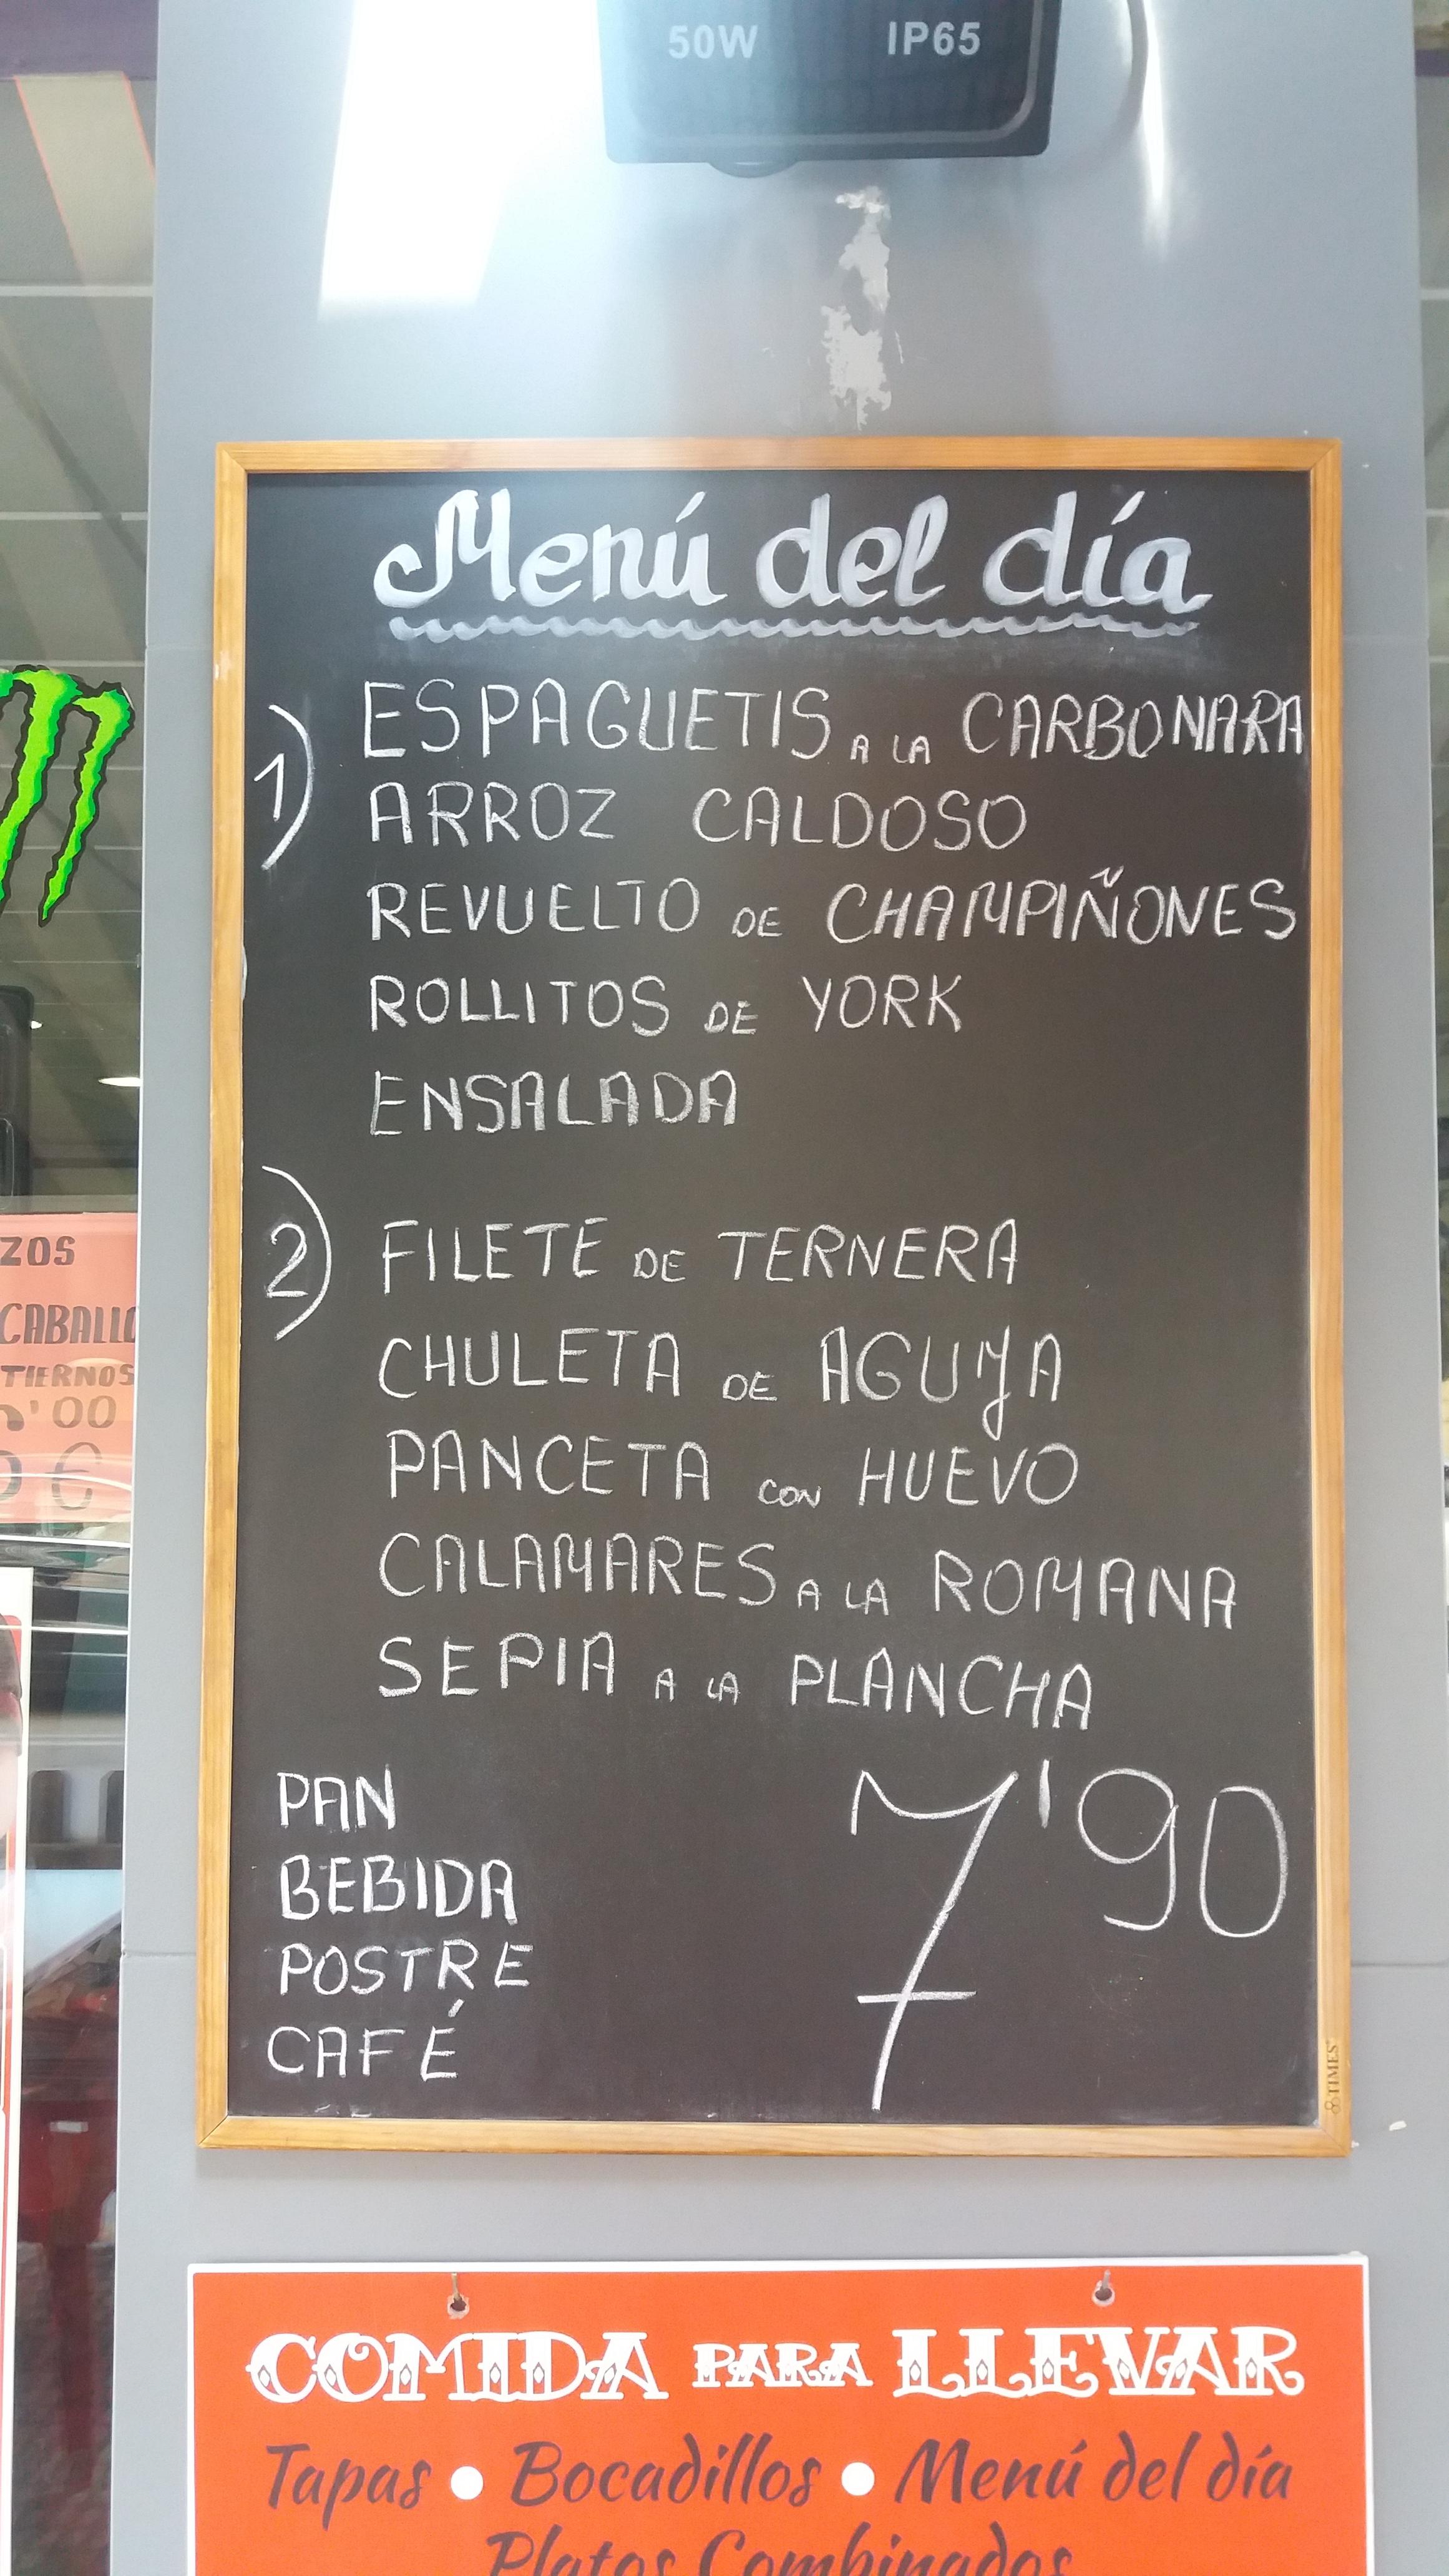 50W IP65
Menú del día
1) ESPAGUETIS A LA CARBONARA
ARROZ CALDOSO
REVUELTO DE CHAMPIÑONES
ROLLITOS DE YORK
ENSALADA
2) FILETE DE TERNERA
CHULETA DE AGUJA
PANCETA CON HUEVO
CALAMARES A LA ROMANA
SEPIA A LA PLANCHA
PAN
BEBIDA
POSTRE
CAFÉ
7'90
TIMES
ZOS
CABALLO
TIERNOS
'00
€
COMIDA PARA LLEVAR
Tapas • Bocadillos • Menú del día
Platos Combinados